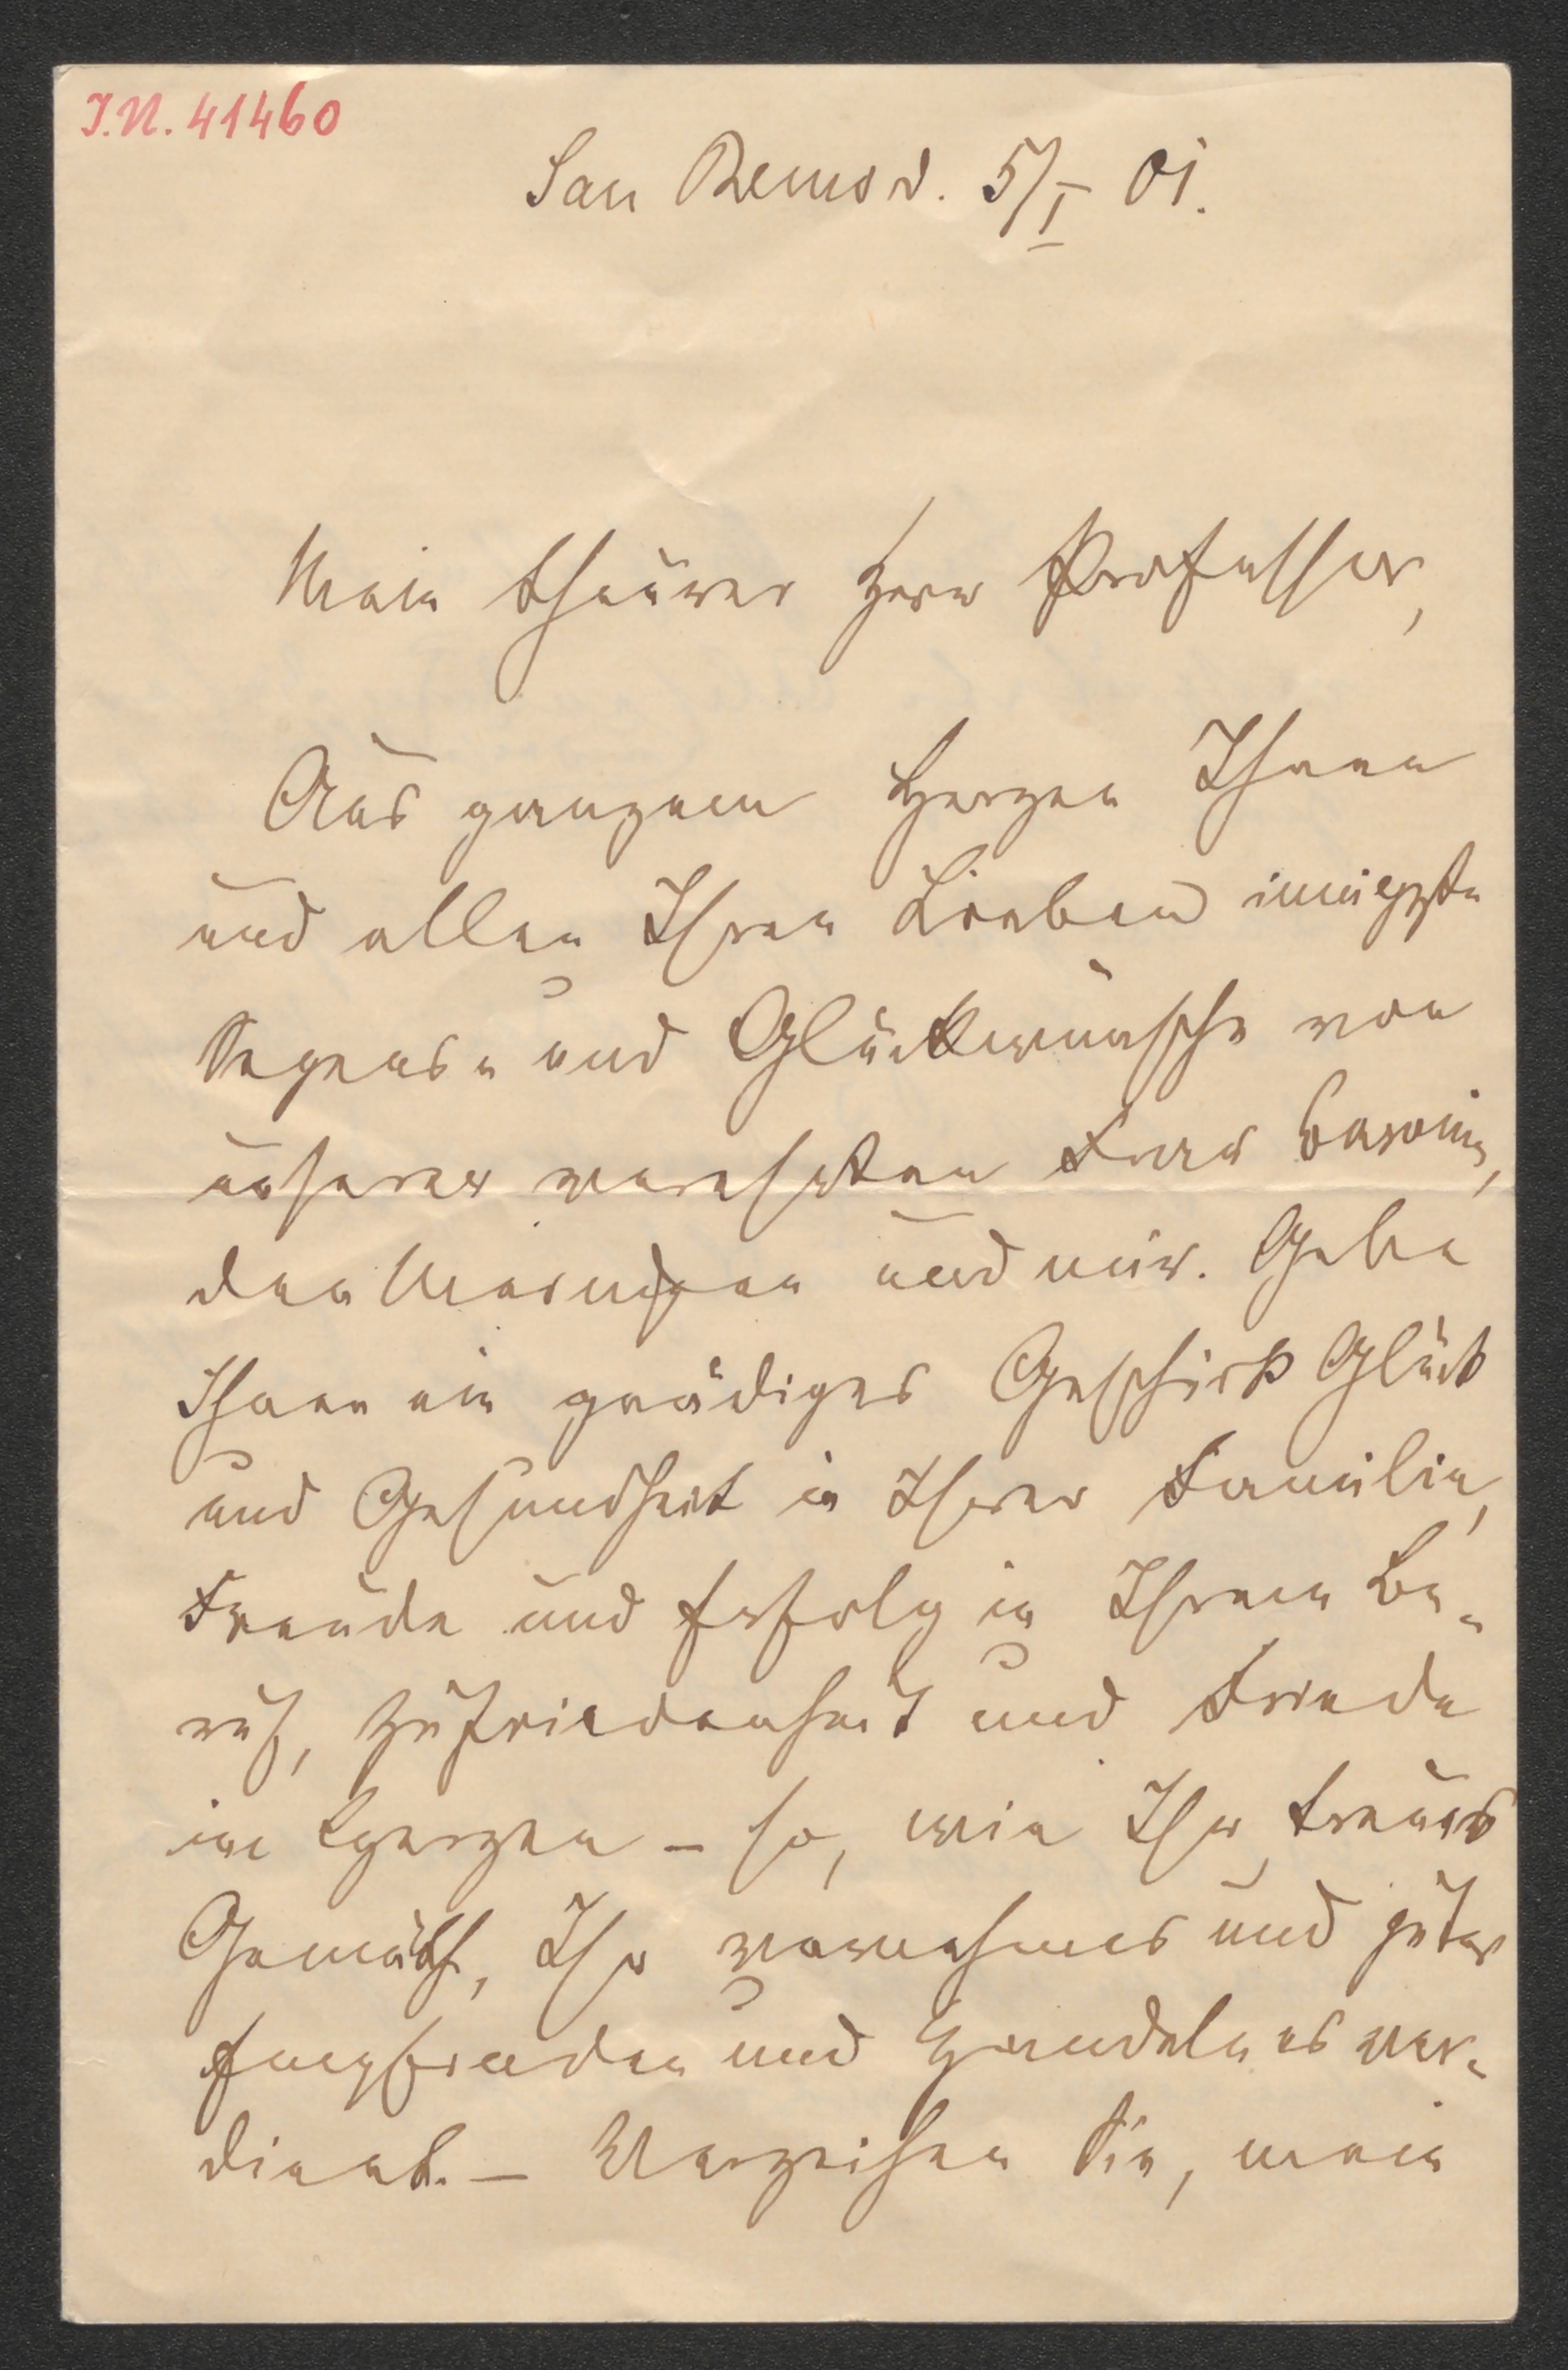 I.N. 41460
San Remo d. 5/I 01.
Mein theurer Herr Professor,
Aus ganzem Herzen Ihnen
und allen Ihren Lieben innigste
Segens- und Glückwünsche von
unserer verehrten Frau Baronin,
den und mir. Gebe
Ihnen ein gnädiges Geschick Glück
und Gesundheit in Ihrer Familie,
Freude und Erfolg in Ihrem Be-
ruf, Zufriedenheit und Friede
im Herzen – so, wie Ihr treues
Gemüth, Ihr vornehmes und gutes
Empfinden und Handeln es ver-
dient. – Verzeihen Sie, mein